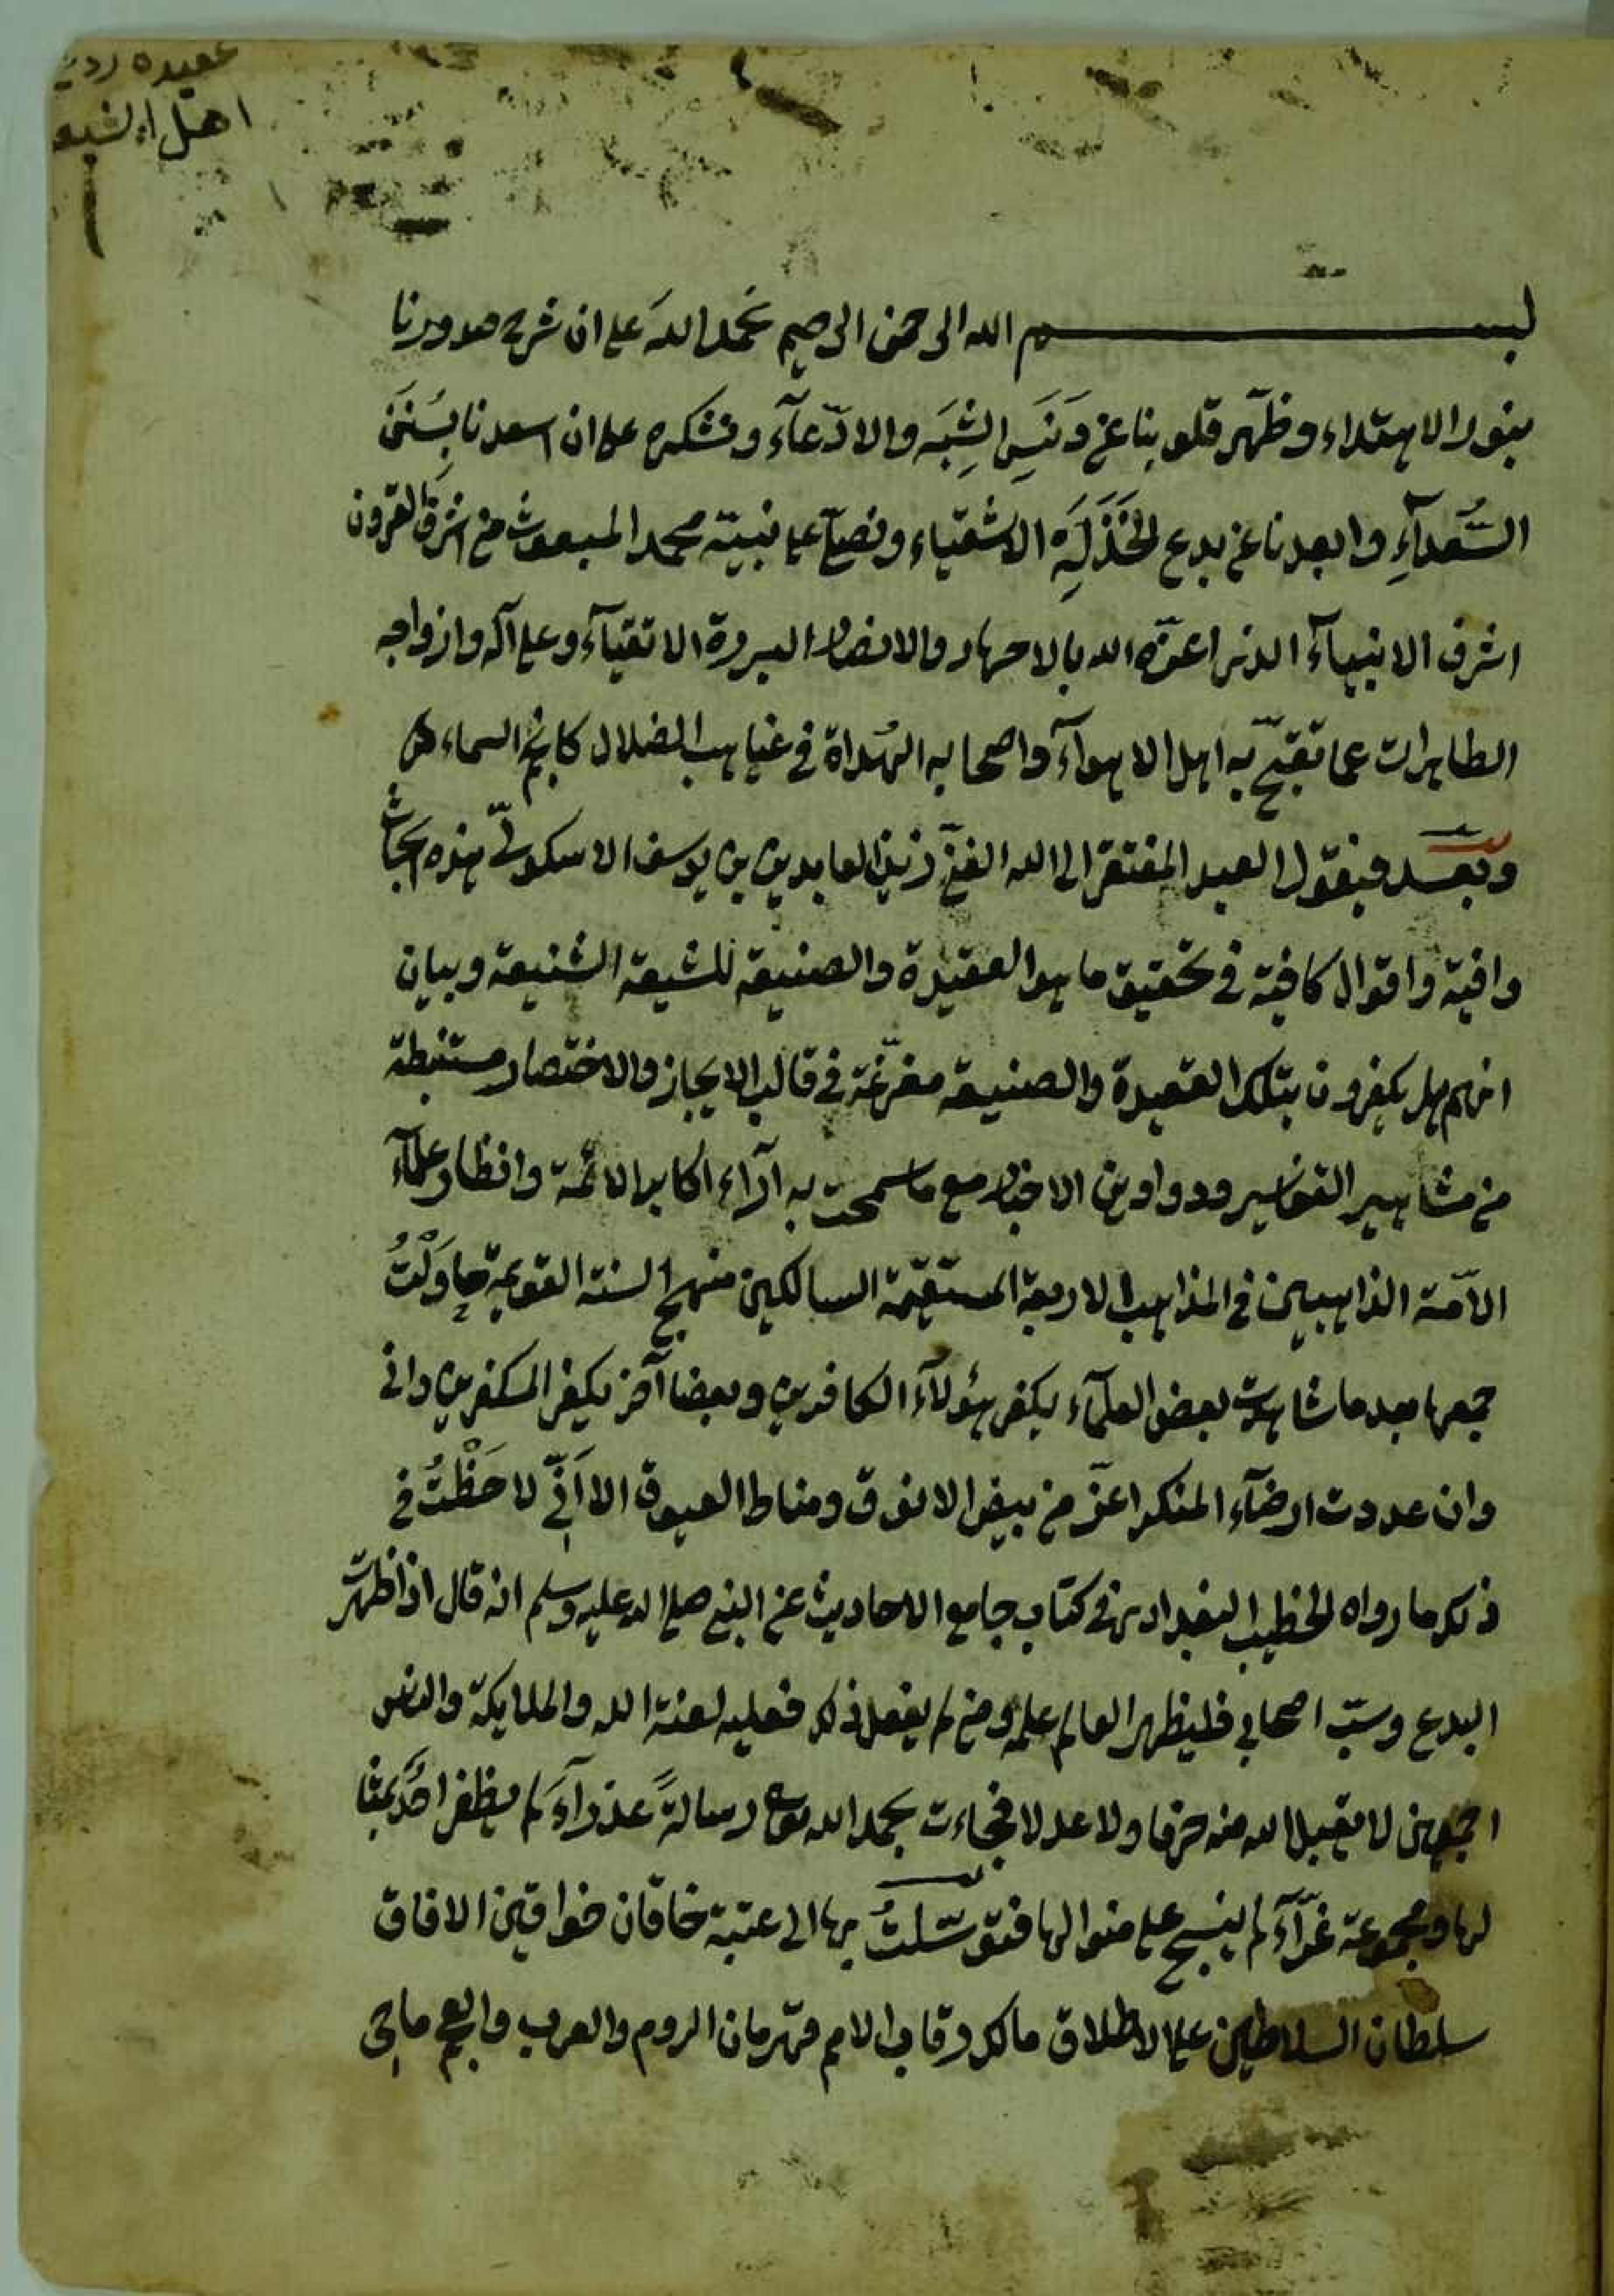 عقيده رد
اهل الشيع
بسم الله الرحمن الرحيم نحمد الله على ان شرح صدورنا
بنور الاهتداء وطهر قلوبنا عن دَنَسِ الشِبَه والادّعآء ونشكره على ان اسعدنا بِسُنَنِ
السُّعدآءِ وابعدنا عن بدع الخَذَلَةِ الاشقياء ونصلّي على نبيّه محمد المبعوث من اشرف القرون
اشرف الانبيآء الذى اعزّه الله بالاصهار والانصار البررة الاتقيآء وعلى آله وازواجه
الطاهرات عما تقبّح به اهل الاهوآء واصحابه الهُداة في غياهب الضلال كانجم السماء
وبعد فيقول العبد المفتقر الى الله الغني زين العابدين بن يوسف الاسكوبّي هذه ابحاث
وافية واقوال كافية في تحقيق ما هو العقيدة والصنيعة للشيعة الشنيعة وبيان
انهم هل يكفرون بتلك العقيدة والصنيعة مفرّغة في قالب الايجاز والاختصار مستنبطة
من مشاهير التفاسير ودواوين الاخبار مع ما سمحت به آراء اكابر الائمة وانظار علمآء
الاّمة الذاهبين في المذاهب الاربعة المستقيمة السالكين منهج السنة القويمة حاوَلْتُ
جمعها بعد ما شاهدت بعض العلمآء يكفر هؤلآء الكافرين وبعضا آخر يكفر المكفرين وانى
وان عددت ارضآء المنكر اعزّ من بيض الانوق ومناط العيوق الا اَنّي لاحَظْتُ في
ذلك ما رواه الخطيب البغدادى في كتاب جامع الاحاديث عن النبي صلى الله عليه وسلم انه قال اذا ظهرت
البدع وسبّ اصحابي فليظهر العالم علمه ومن لم يفعل ذلك فعليه لعنة الله والملايكة والناس
اجمعين لا يقبل الله منه صرفا ولا عدلا فجاءت بحمد الله تعالى رسالةً عذرآءَ لم يظفر احدٌ بمثا
لها ومجموعة غرّآءَ لم ينسج على منوالها فتوسّلتُ بها الى عتبة خاقان خواقين الافاق
سلطان السلاطين على الاطلاق مالك رقاب الامم قهرمان الروم والعرب والعجم ماحى